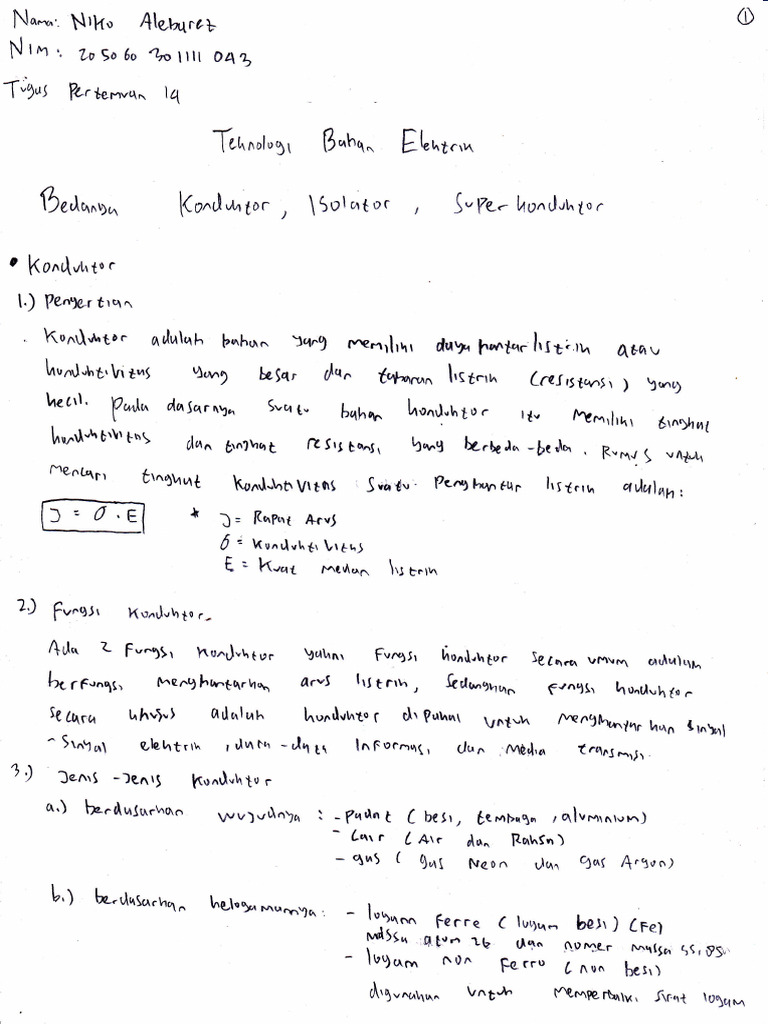 Nama: Niko Aleburez
①
NIM: 205060 301111 043
Tugas Pertemuan 14
Teknologi Bahan Elektrik
Bedanya Konduktor, Isolator, Superkonduktor
• Konduktor
1.) Pengertian
Konduktor adalah bahan yang memiliki daya hantar listrik atau
konduktivitas yang besar dan tahanan listrik (resistansi) yang
kecil. Pada dasarnya suatu bahan konduktor itu memiliki tingkat
konduktivitas dan tingkat resistansi yang berbeda-beda. Rumus untuk
mencari tingkat konduktivitas suatu penghantar listrik adalah:
J = σ . E * J = Rapat Arus
σ = Konduktivitas
E = Kuat medan listrik
2.) Fungsi Konduktor.
Ada 2 Fungsi Konduktor yakni Fungsi konduktor secara umum adalah
berfungsi menghantarkan arus listrik, sedangkan fungsi konduktor
secara khusus adalah konduktor dipakai untuk menghantarkan sinyal
-sinyal elektrik, data-data informasi, dan media transmisi.
3.) Jenis-Jenis Konduktor
a.) berdasarkan wujudnya : - padat (besi, tembaga, aluminium)
- Cair (Air dan Raksa)
- gas (gas Neon dan gas Argon)
b.) berdasarkan kelogamannya: - logam Ferro (logam besi) (Fe)
massa atom 26 dan nomer massa 55,85
- logam non Ferro (non besi)
digunakan untuk memperbaiki sifat logam